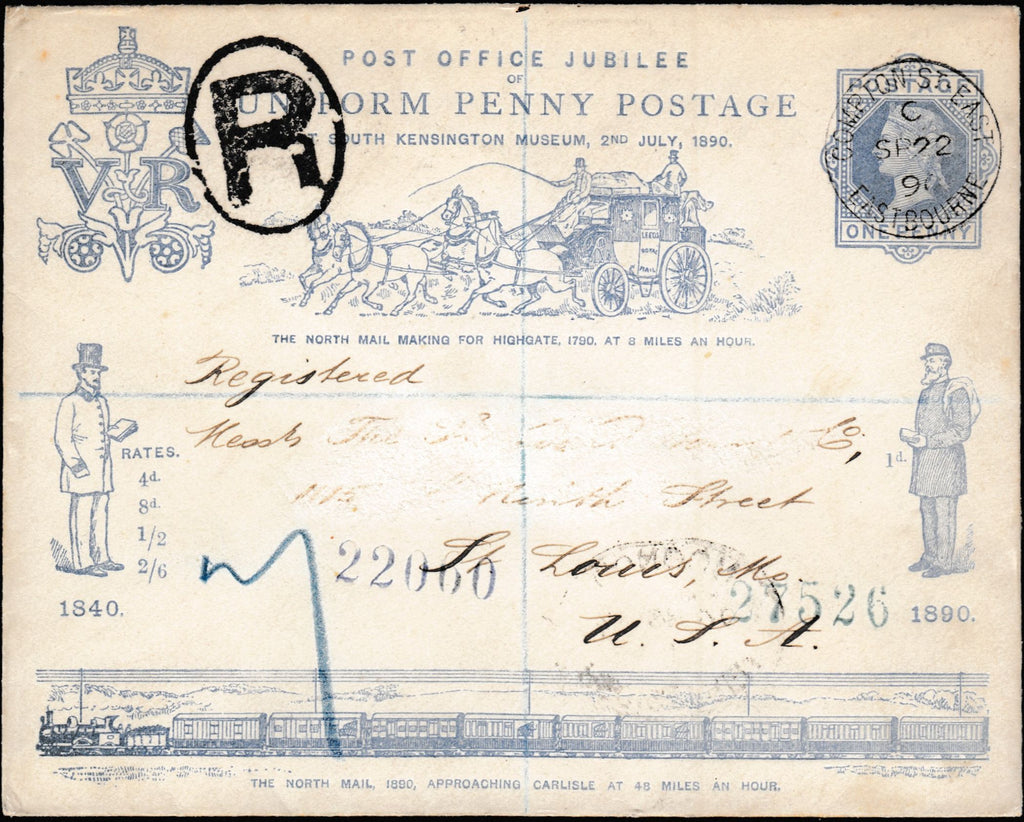 POST OFFICE JUBILEE
OF
UNIFORM PENNY POSTAGE
SOUTH KENSINGTON MUSEUM, 2ND JULY, 1890.
R
V R
COMPTON ST EAST
C
SP 22
90
EASTBOURNE
POSTAGE
ONE PENNY
LEEDS
ROYAL
MAIL
THE NORTH MAIL MAKING FOR HIGHGATE, 1790, AT 8 MILES AN HOUR.
Registered
Messrs The Co,
Street
St. Louis, Mo.
U. S. A.
RATES.
4d.
8d.
1/2
2/6
1840.
1d.
1890.
22060
27526
THE NORTH MAIL, 1890, APPROACHING CARLISLE AT 48 MILES AN HOUR.